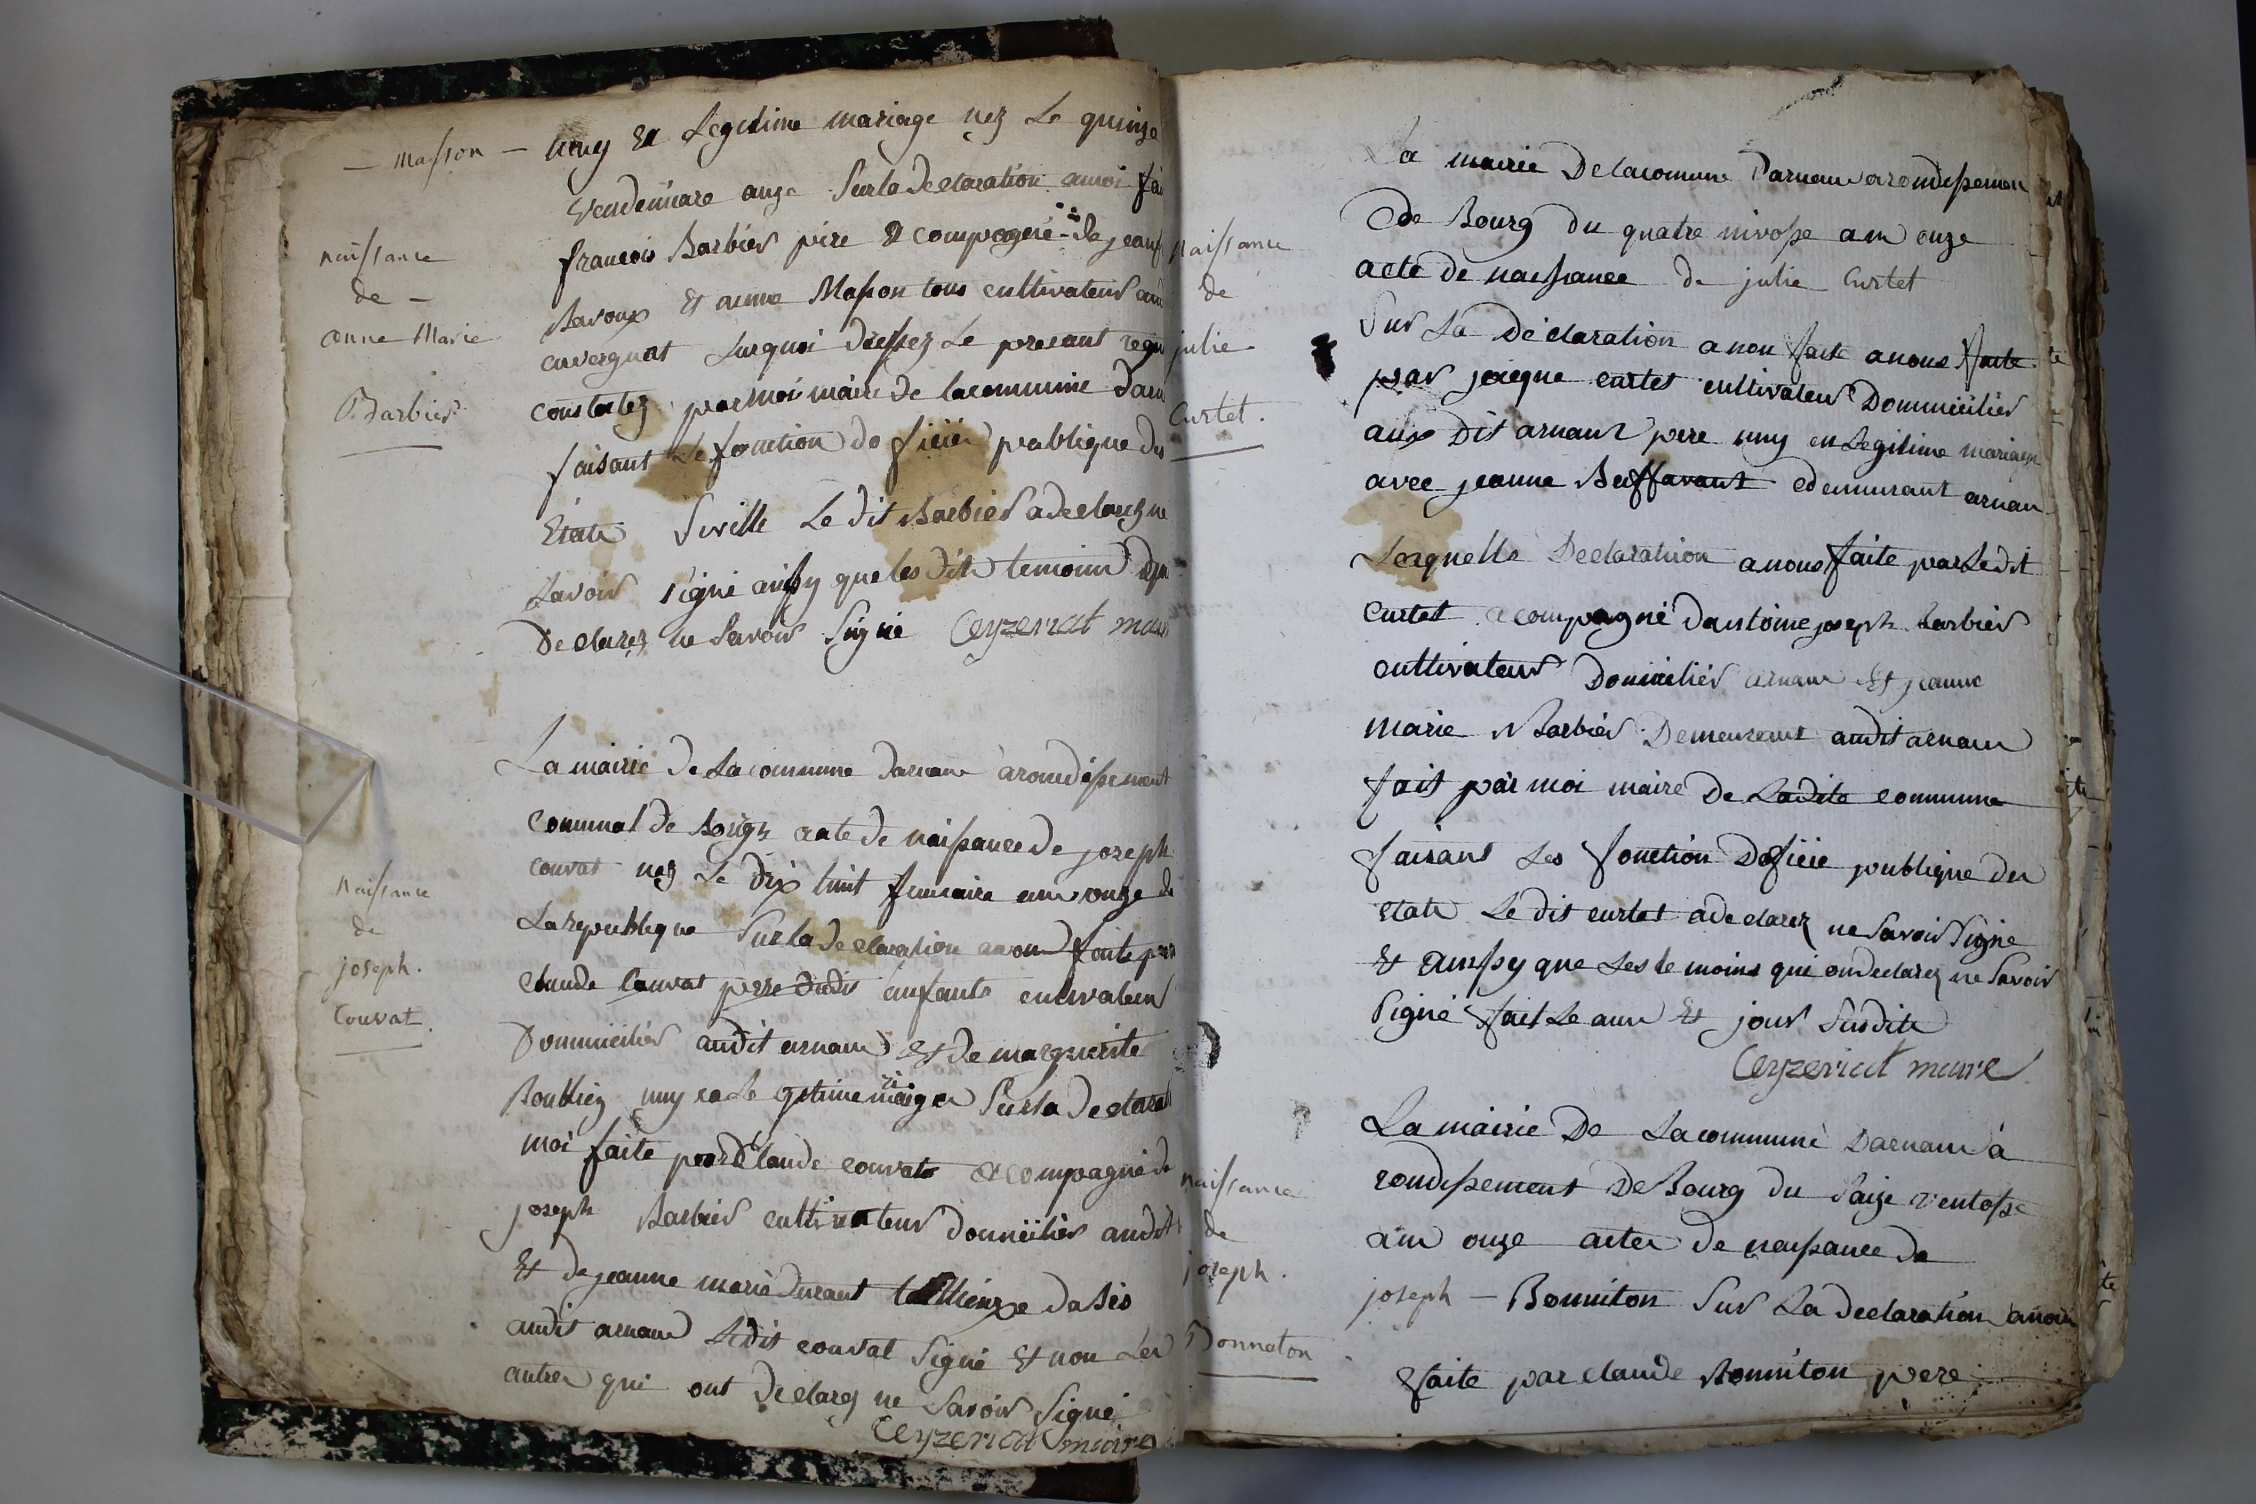 — Masson —
uny En Legitime mariage nez Le quinze
Vendemiare onze Surla Declaration amoi fai
naissance
de —
anne Marie
Barbier
francois Barbier pere & compagné de jean
Ravoux Et anne Masson tous cultivateur au
cuvergnat Surquoi Dressez Le presant regi
constatez par moi maire de la commune Darn
faisant Le fonction do ficier publique des
Etate Siville Le dit Barbier a declarez ne
Savoir signé ainssy que les dits temoins
De clarez ne Savoir Signé Ceyzeriat maire
La mairie de La commune Darnam arondissement
Naissance
de
joseph.
Couvat.
communal de Bourg acte de naissance de joseph
couvat nez Le dix huit frimaire ann onze de
La republique Surla declaration anous faite par
claude Couvat pere dudit anfants cultivateur
Dommicilier audit arnam Et de marguerite
uny en Le gitime mariage Surla Declarat
moi faite par Claude couvat acompagné de
joseph Barbier cultivateur Domicilier audit
Et de jeanne marie Durant
audit arnam Ledit couvat Signé Et non Les
autre qui ont De clarez ne Savoir Signé
Ceyzeriat maire
La mairie De lacommune Darnam arondissemen
de Bourg du quatre nivosse ann onze
naissance
de
julie
Curtet.
acte de naissance de julie Curtet
Sur La Déclaration a nou faite a nous faite
par jacque curtet cultivateur Dommicilier
aux dit arnam pere uny en Legitime mariage
avec jeanne Buffavant edemurant arnam
Laquelle Declaration a nous faite par Ledit
Curtet acompagné dantoine joseph Barbier
cultivateur Domicilier arnam Et jeanne
marie Barbier Demeurant audit arnam
fait par moi maire De Ladite commune
faisant Les fonction Deficie publique der
etate Le dit curtet a declarez ne Savoir Signe
Et Ainssy que Les te moins qui on declarez ne Savoir
Signé fait Le ann Et jour Susdite
Ceyzeriat maire
La mairie De La commune Darnam à
naissance
de
joseph.
Bonnaton
rondissement De Bourg du Saize ventosse
ann onze acte de naissance de
joseph — Bonniton Sur La declaration anou
faite par claude Bonniton pere